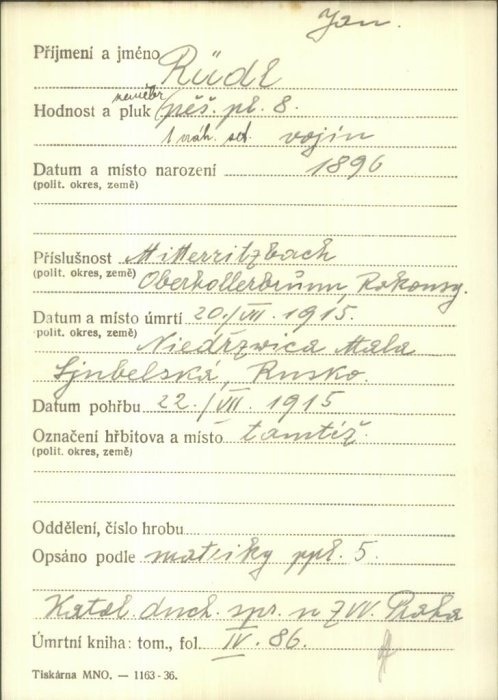 Jan.
Příjmení a jméno Rüdl
německ.
Hodnost a pluk (pěš. pl. 8.
1 náh. set. vojín
Datum a místo narození 1896
(polit. okres, země)
Příslušnost Mitterritzbach
(polit. okres, země) Oberhollerbrunn, Rakousy.
Datum a místo úmrtí 20./VII. 1915.
(polit. okres, země) Niedrzwica Mala
Ljubelská, Rusko.
Datum pohřbu 22./VII. 1915
Označení hřbitova a místo tamtéž.
(polit. okres, země)
Oddělení, číslo hrobu
Opsáno podle matriky ppl. 5.
Katol. duch. spr. u ZVV. Praha
Úmrtní kniha: tom., fol. IV. 86.
Tiskárna MNO. — 1163-36.